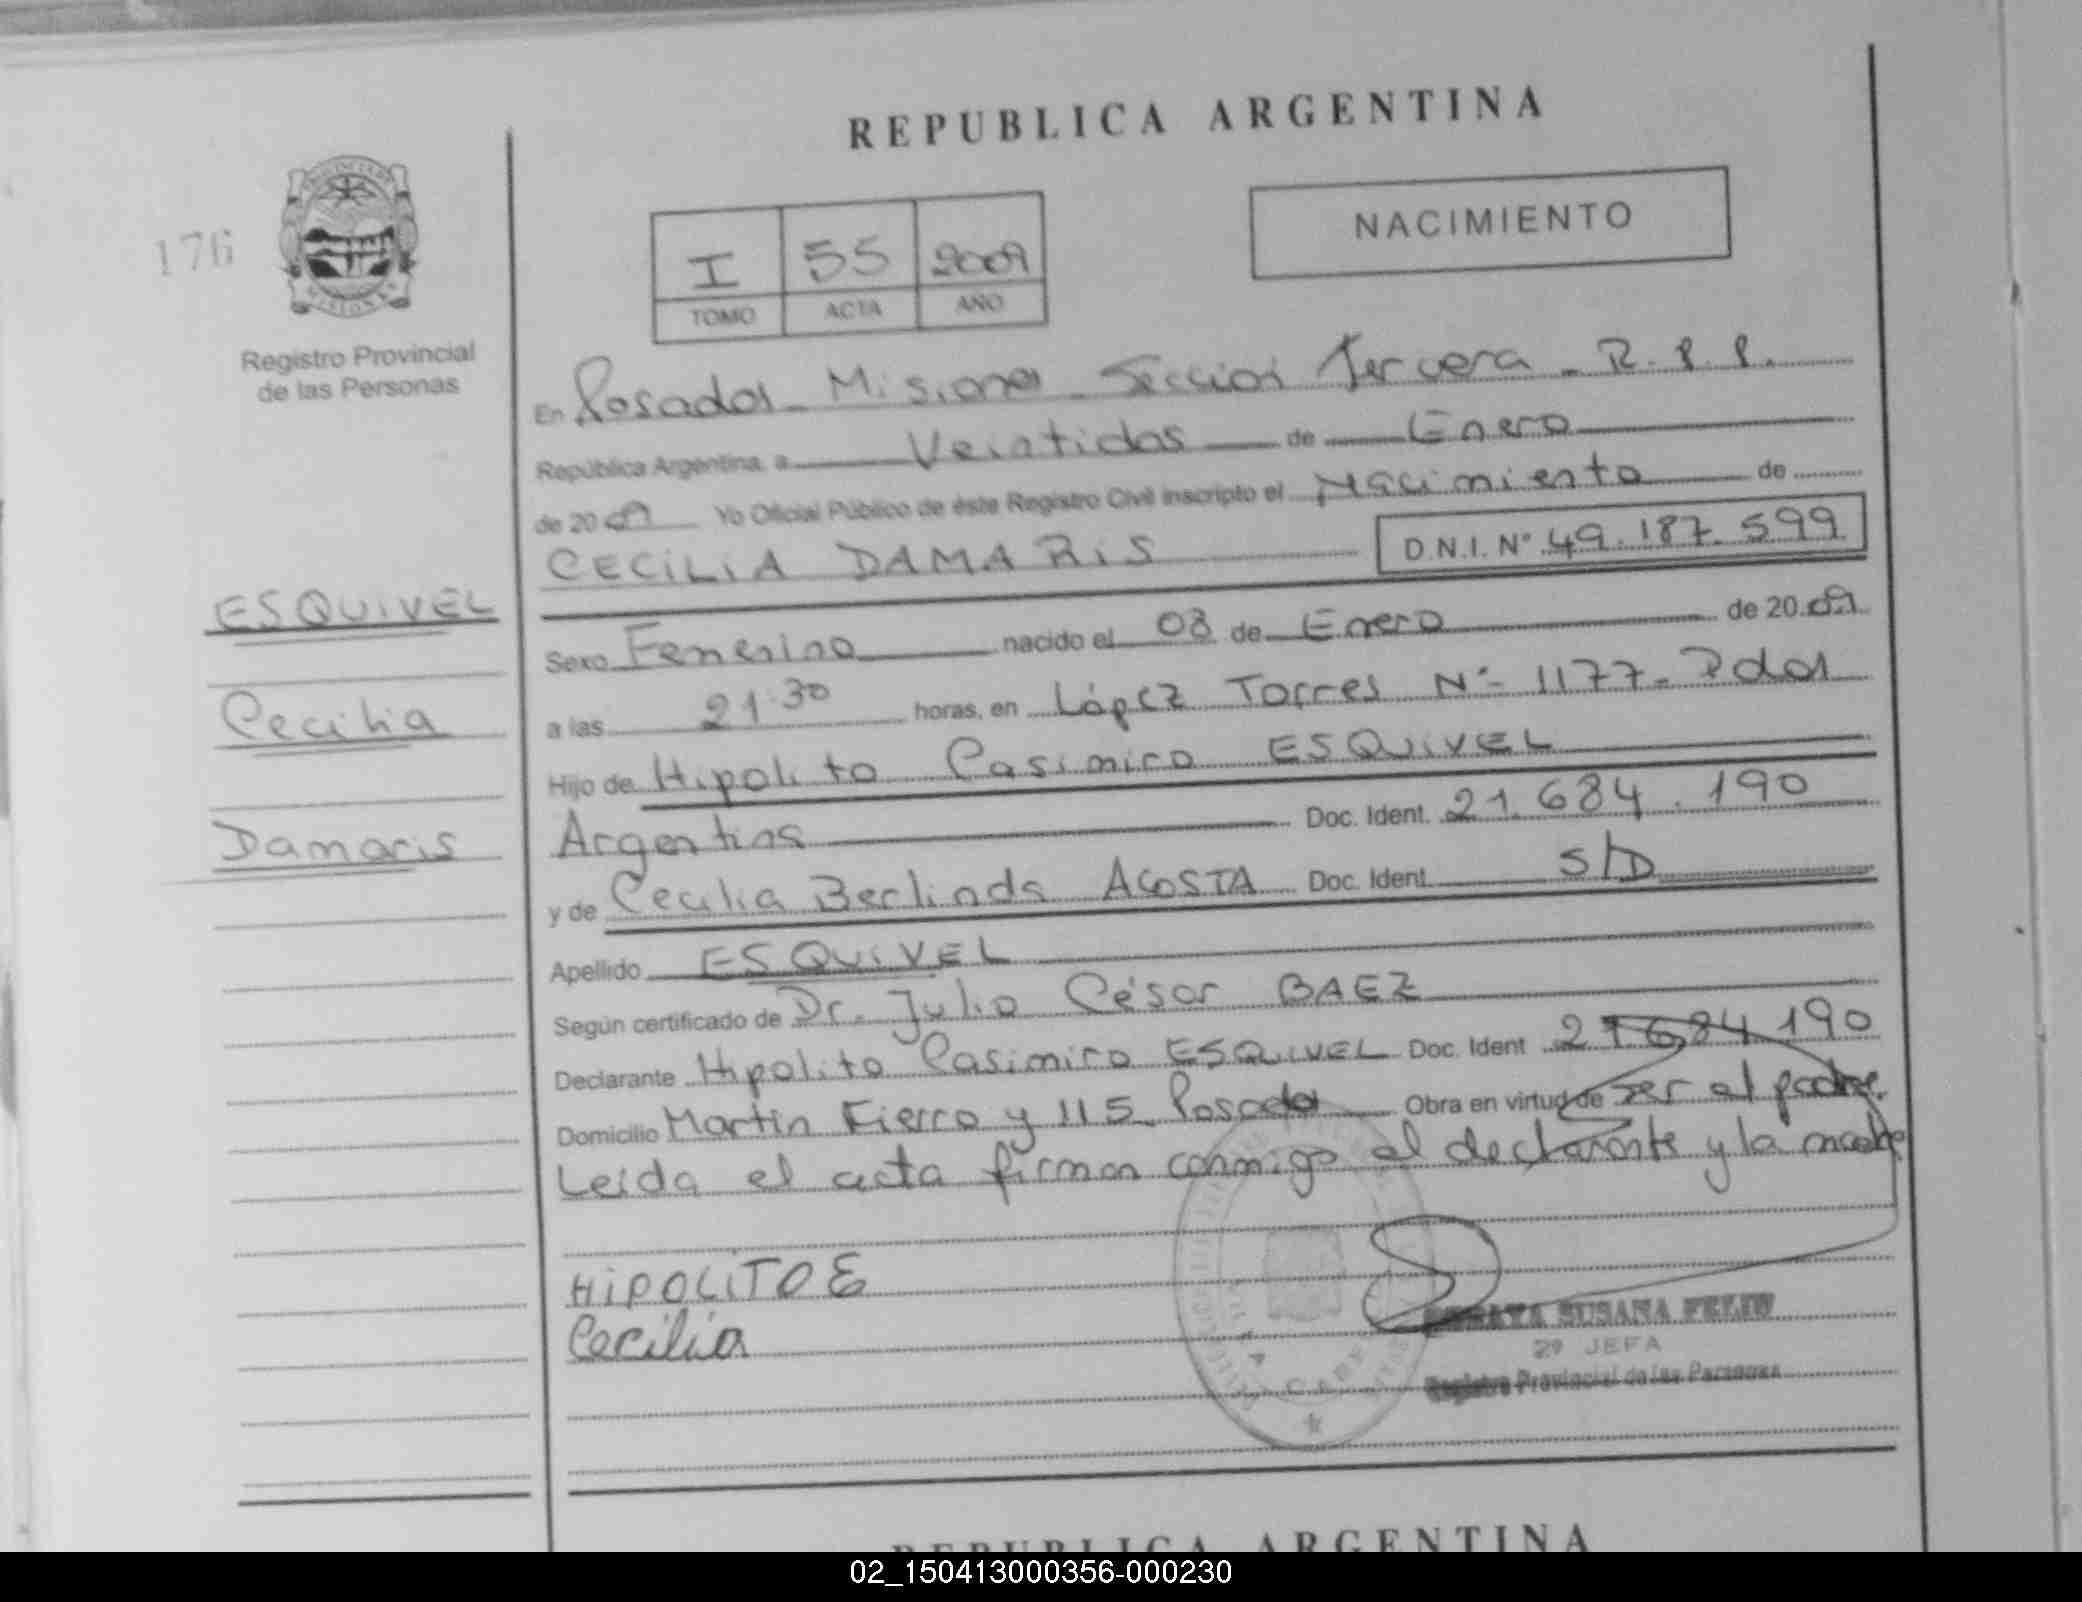 REPUBLICA ARGENTINA
176
NACIMIENTO
I 55 2009
TOMO ACTA AÑO
Registro Provincial
de las Personas
En Posadas - Misiones - Sección Tercera - R.P.P.
República Argentina, a Veintidos de Enero
de 2009 Yo Oficial Público de éste Registro Civil inscripto el Nacimiento de
CECILIA DAMARIS D.N.I. Nº 49.187.599
ESQUIVEL
Cecilia
Damaris
Sexo Femenino nacido el 08 de Enero de 2009
a las 21:30 horas, en López Torres Nº 1177 - Pdas
Hijo de Hipolito Casimiro ESQUIVEL
Argentina Doc. Ident. 21.684.190
y de Cecilia Berlinda ACOSTA Doc. Ident. S/D
Apellido ESQUIVEL
Según certificado de Dr. Julio César BAEZ
Declarante Hipolito Casimiro ESQUIVEL Doc. Ident 21684190
Domicilio Martín Fierro y 115 Posadas Obra en virtud de ser el padre.
Leida el acta firman conmigo el declarante y la madre
HIPOLITO E
Cecilia
SUSANA FELIU
2º JEFA
Registro Provincial de las Personas
REPUBLICA ARGENTINA
02_150413000356-000230